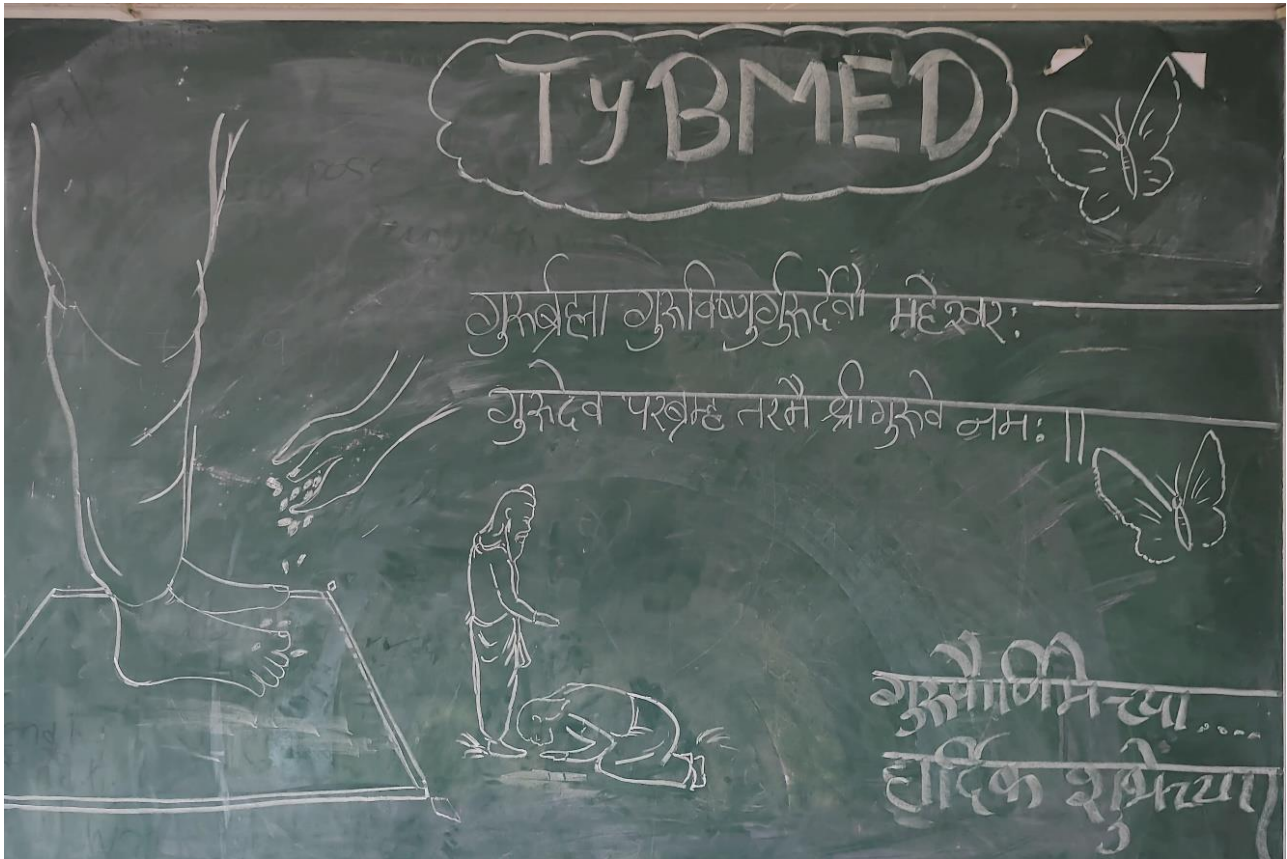 TyBMED
गुरुर्ब्रह्मा गुरुर्विष्णुर्गुरुर्देवो महेश्वरः
गुरुदेव परब्रम्ह तस्मै श्रीगुरुवे नमः ||
गुरुपौर्णिमेच्या....
हार्दिक शुभेच्छा